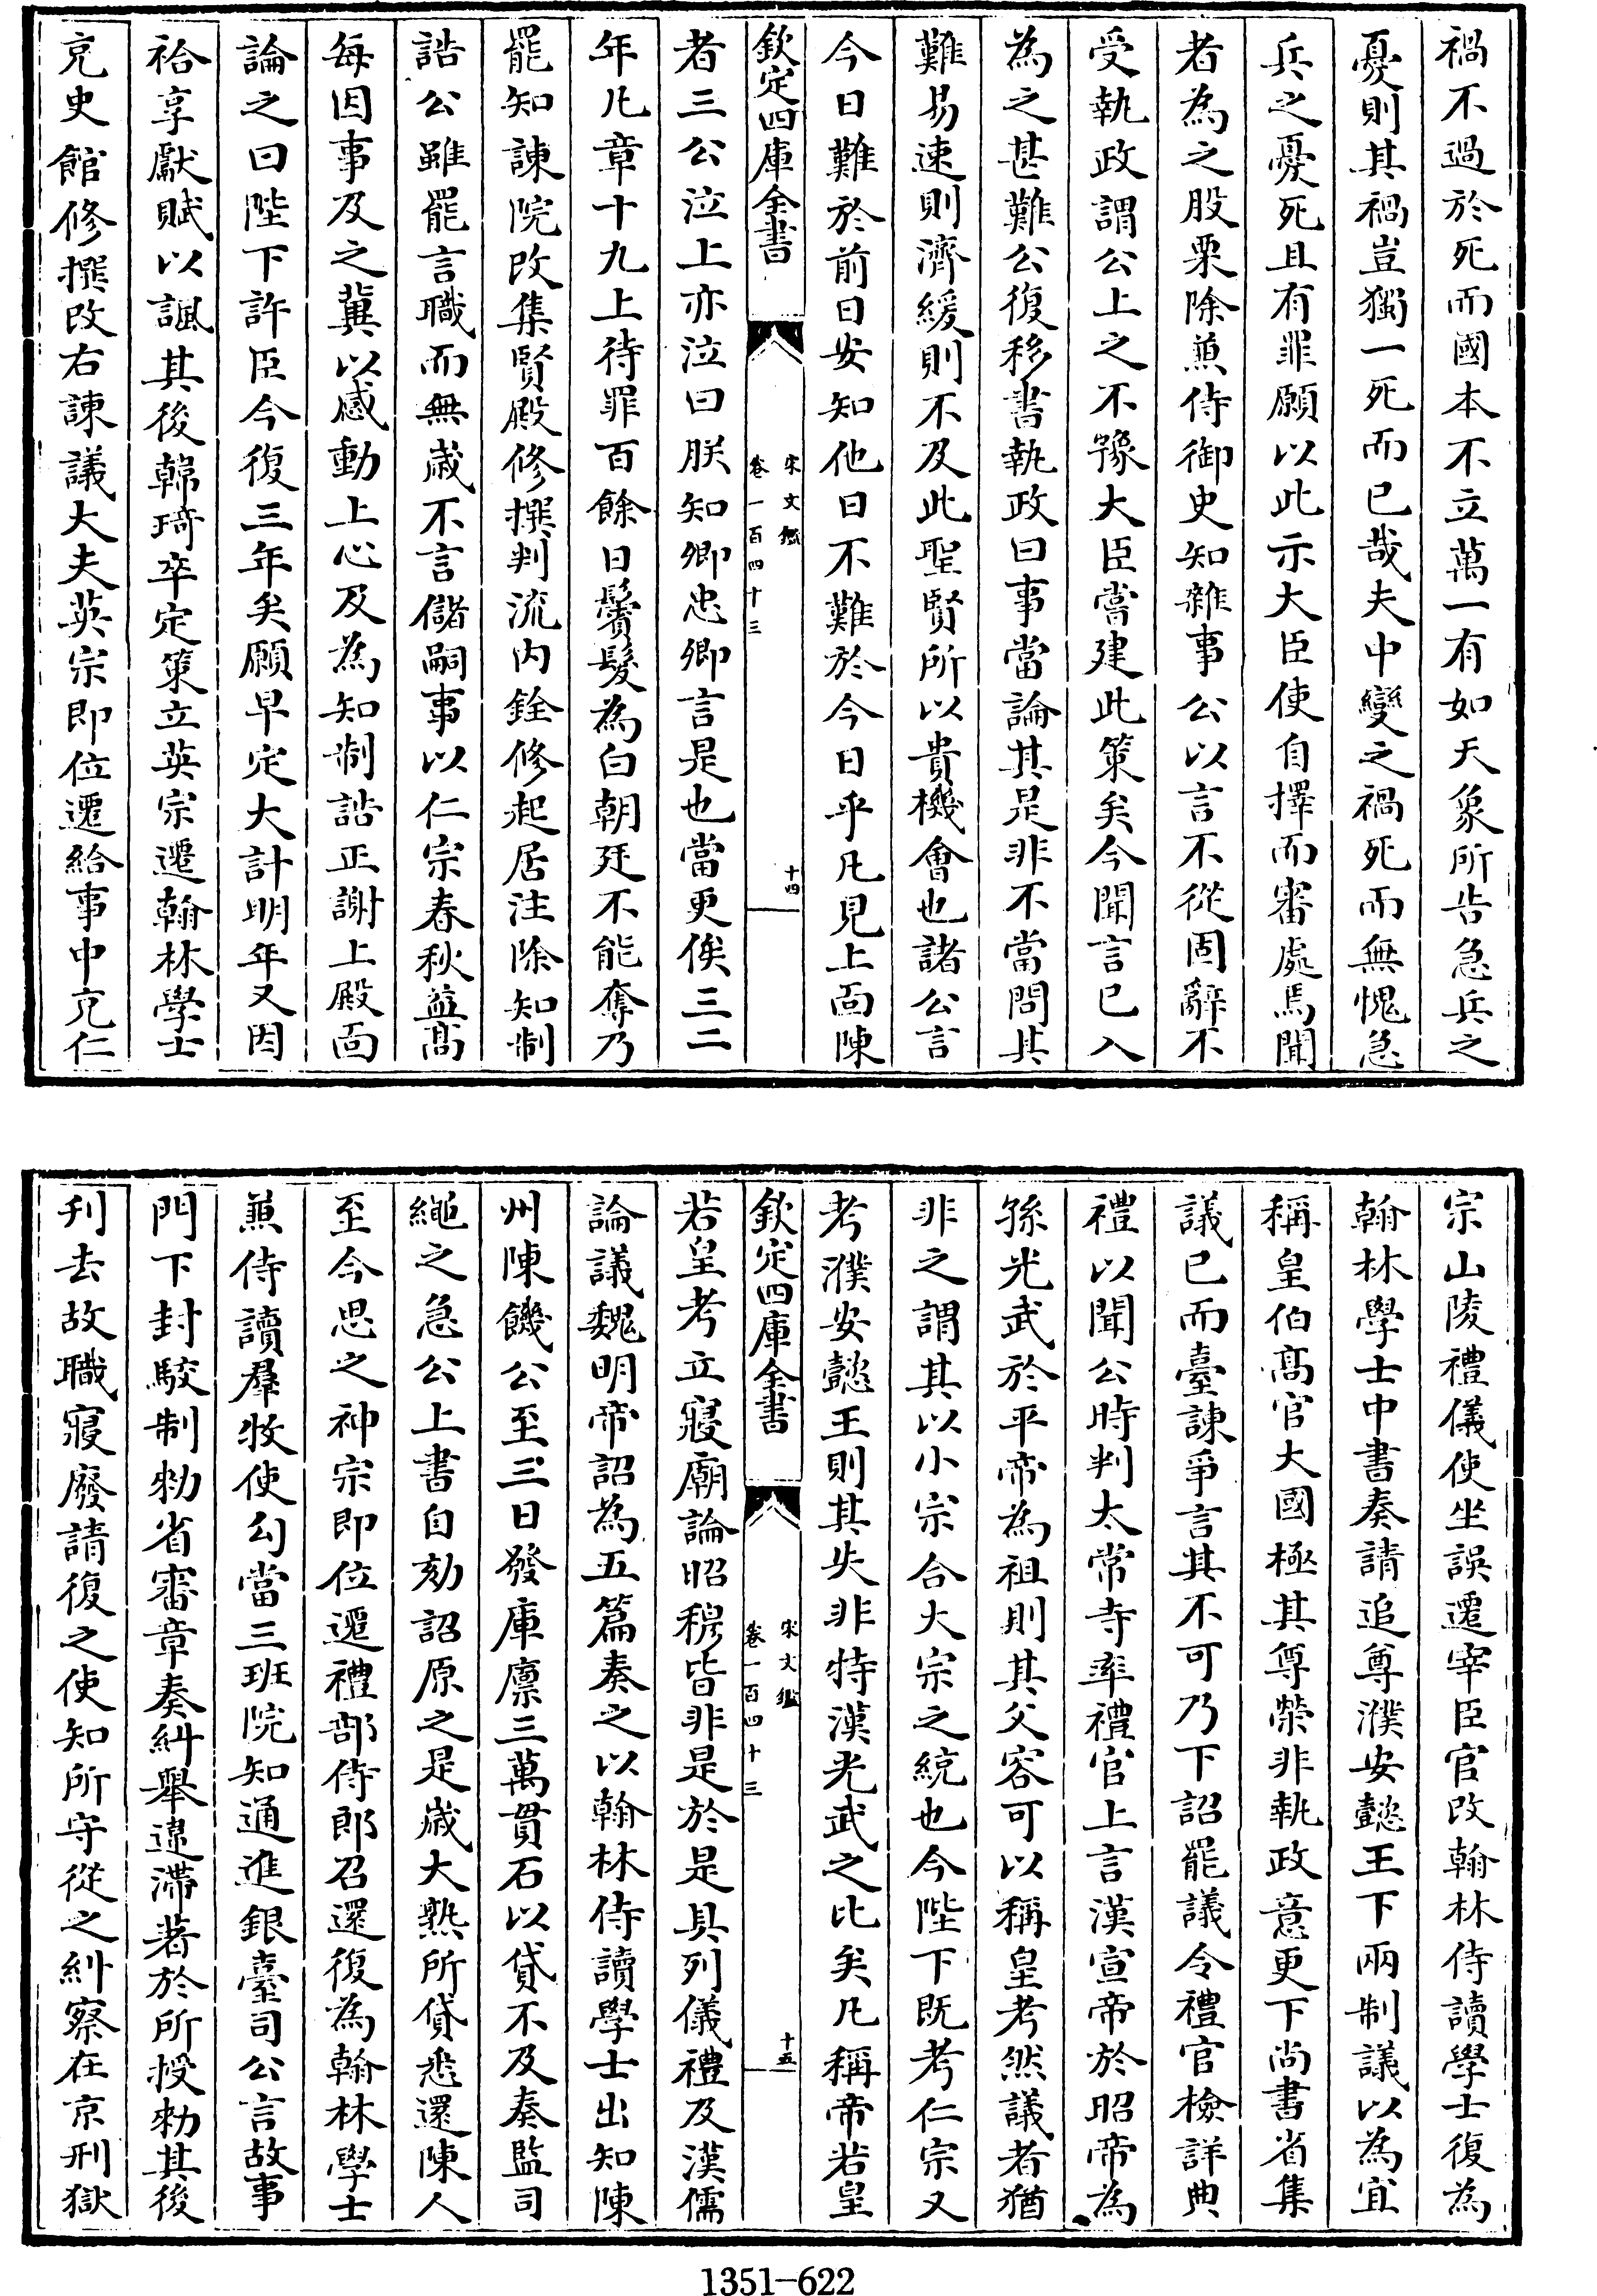 禍不過於死而國本不立萬一有如天象所告急兵之
憂則其禍豈獨一死而已哉夫中變之禍死而無愧急
兵之憂死且有罪願以此示大臣使自擇而審處焉聞
者為之股栗除兼侍御史知雜事公以言不從固辭不
受執政謂公上之不豫大臣嘗建此策矣今聞言已入
為之甚難公復移書執政曰事當論其是非不當問其
難易速則濟緩則不及此聖賢所以貴機會也諸公言
今日難於前日安知他日不難於今日乎凡見上面陳
欽定四庫全書
宋文鑑
卷一百四十三
十四
者三公泣上亦泣曰朕知卿忠卿言是也當更俟三二
年凡章十九上待罪百餘日鬚髮為白朝廷不能奪乃
罷知諫院改集賢殿修撰判流內銓修起居注除知制
誥公雖罷言職而無歲不言儲嗣事以仁宗春秋益高
每因事及之冀以感動上心及為知制誥正謝上殿面
論之曰陛下許臣今復三年矣願早定大計明年又因
祫享獻賦以諷其後韓琦卒定策立英宗遷翰林學士
充史館修撰改右諫議大夫英宗即位遷給事中充仁
宗山陵禮儀使坐誤遷宰臣官改翰林侍讀學士復為
翰林學士中書奏請追尊濮安懿王下兩制議以為宜
稱皇伯高官大國極其尊榮非執政意更下尚書省集
議已而臺諫爭言其不可乃下詔罷議令禮官檢詳典
禮以聞公時判太常寺率禮官上言漢宣帝於昭帝為
孫光武於平帝為祖則其父容可以稱皇考然議者猶
非之謂其以小宗合大宗之統也今陛下既考仁宗又
考濮安懿王則其失非特漢光武之比矣凡稱帝若皇
欽定四庫全書
宋文鑑
卷一百四十三
十五
若皇考立寢廟論昭穆皆非是於是具列儀禮及漢儒
論議魏明帝詔為五篇奏之以翰林侍讀學士出知陳
州陳饑公至三日發庫廩三萬貫石以貸不及奏監司
繩之急公上書自劾詔原之是歲大熟所貸悉還陳人
至今思之神宗即位遷禮部侍郎召還復為翰林學士
兼侍讀羣牧使勾當三班院知通進銀臺司公言故事
門下封駮制勑省審章奏糾舉違滯著於所授勑其後
刋去故職寢廢請復之使知所守從之糾察在京刑獄
1351-622